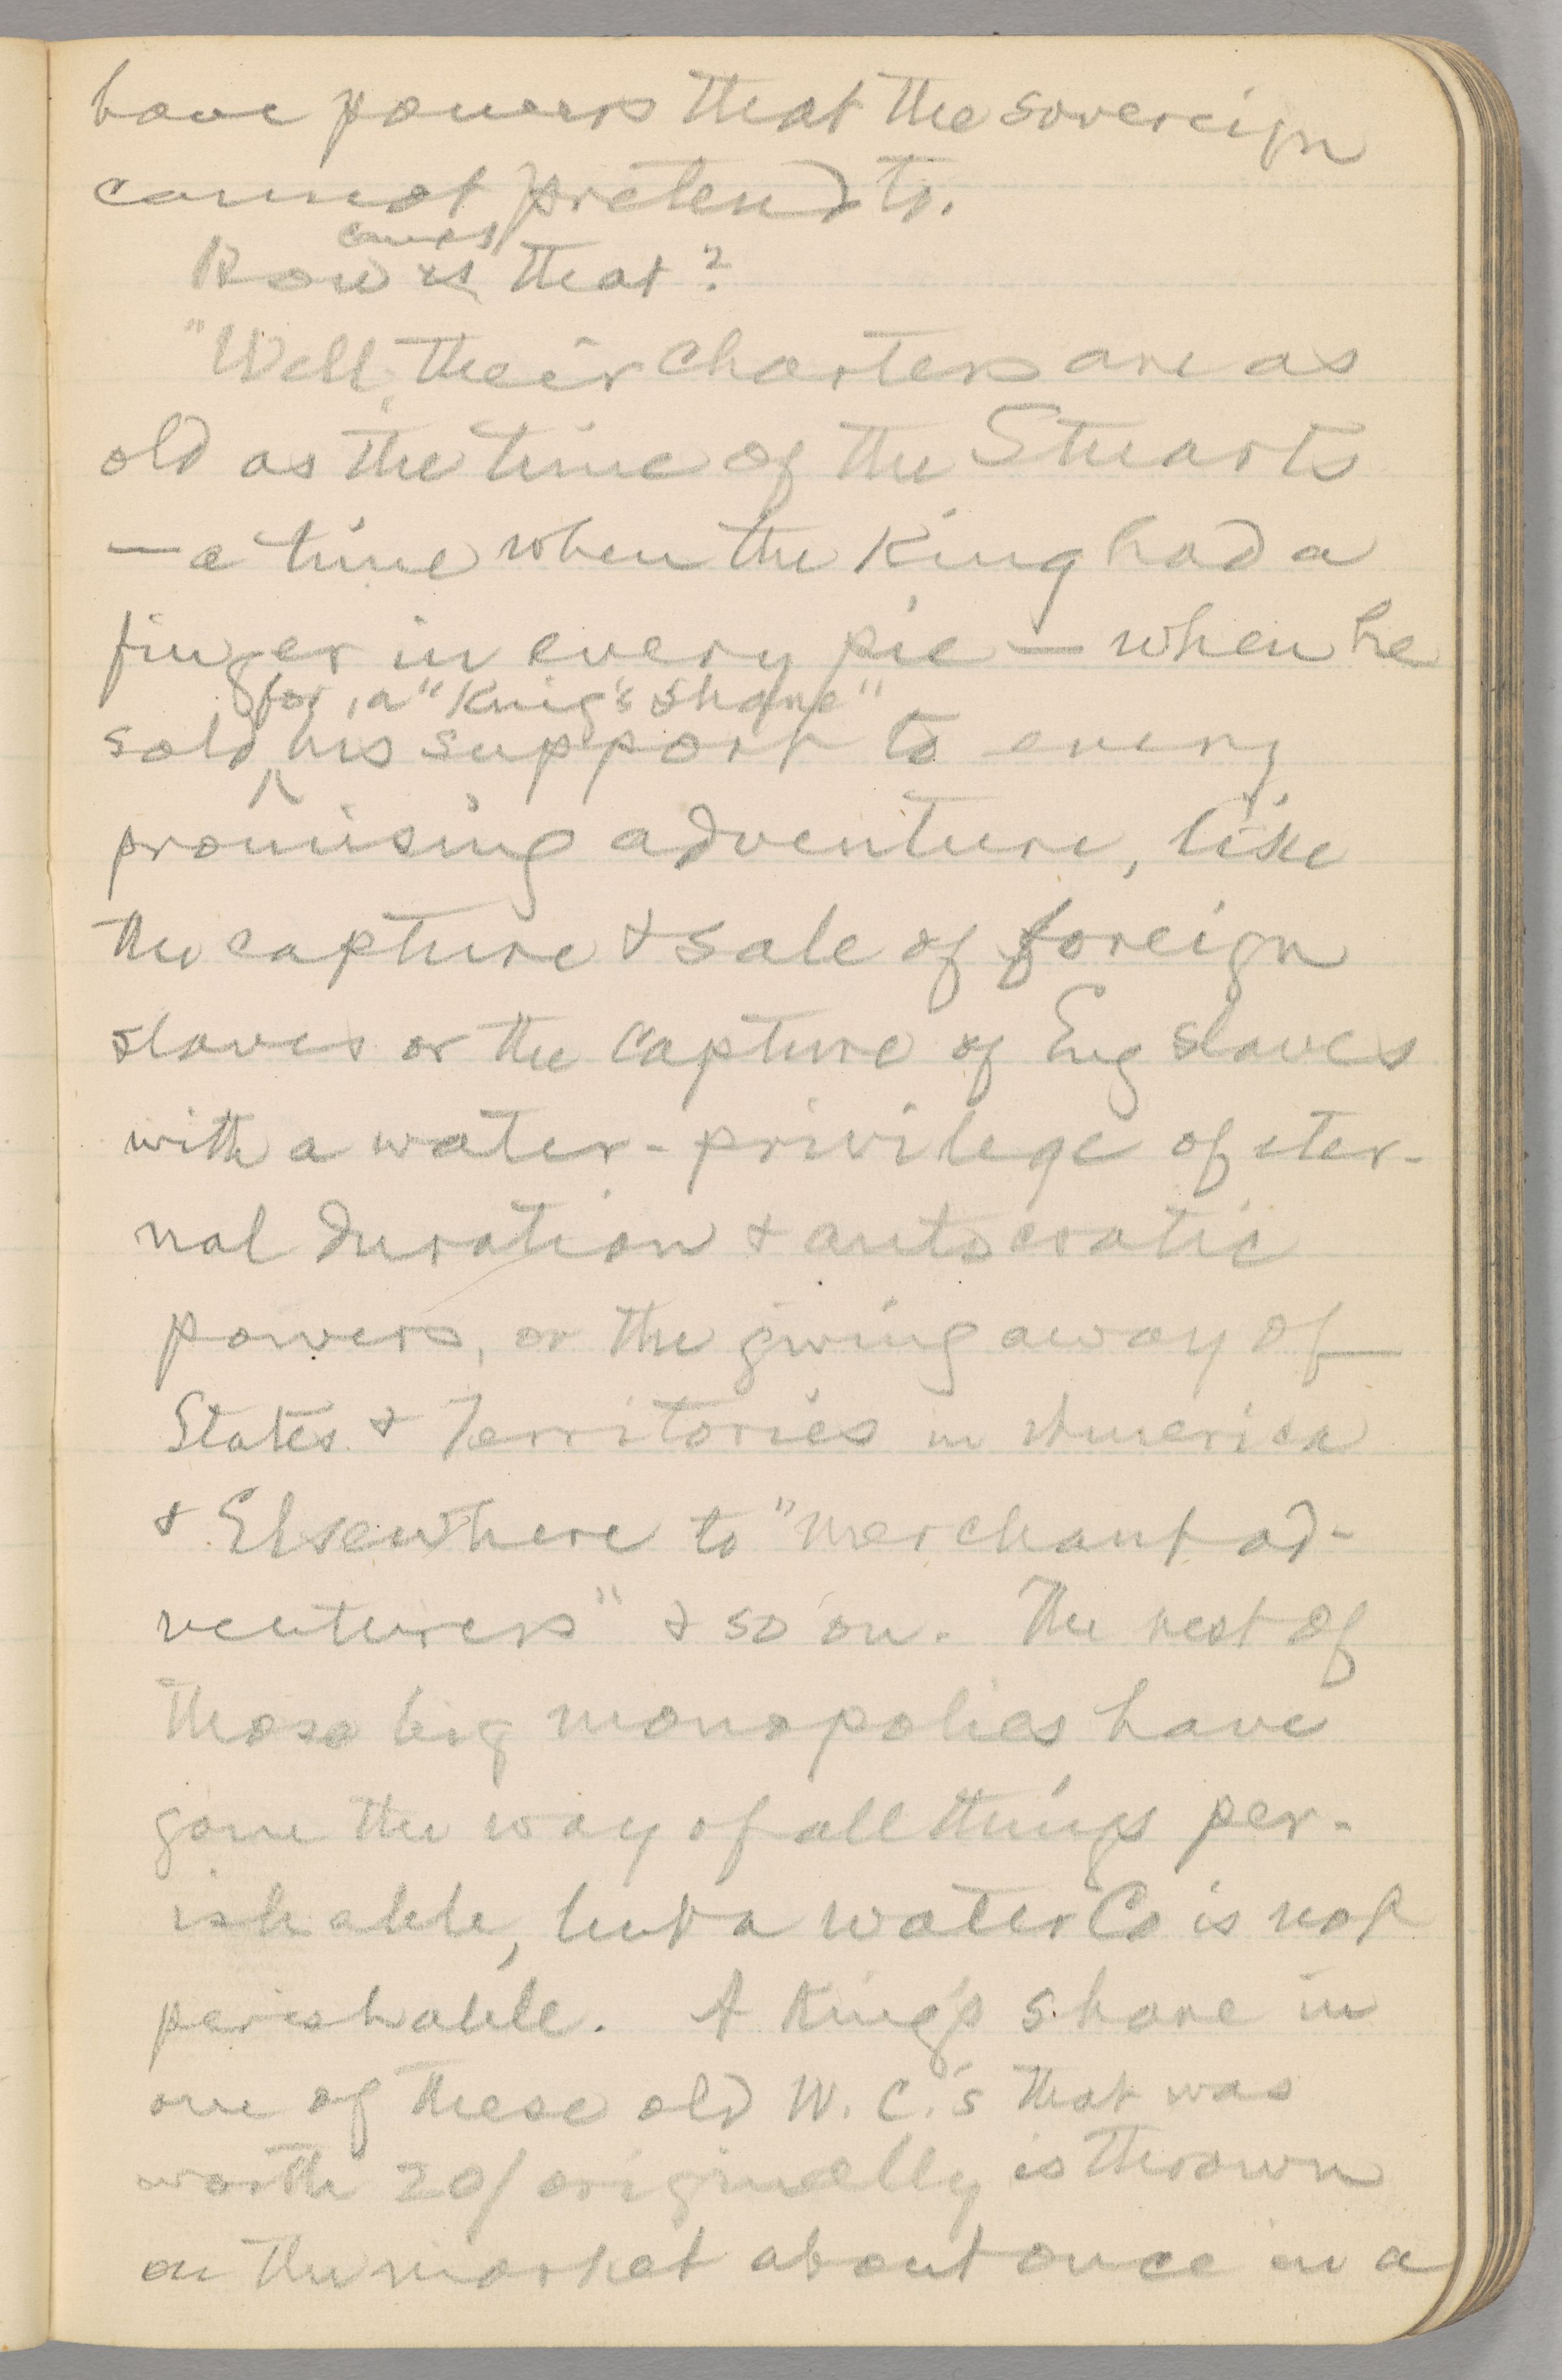 have powers that the sovereign
cannot pretend to.
comes
How is that?
"Well, their charters are as
old as the time of the Stuarts
—a time when the King had a
finger in every pie — when he
for a "King's share"
sold his support to every
promising adventure, like
the capture & sale of foreign
slaves or the capture of Eng slaves
with a water-privilege of eter-
nal duration & autocratic
powers, or the giving away of
States & Territories in America
& Elsewhere to "merchant ad-
venturers" & so on. The rest of
those big monopolies have
gone the way of all things per-
ishable, but a water Co is not
perishable. A King's share in
one of these old W. C.'s that was
worth 20/ originally is thrown
on the market about once in a